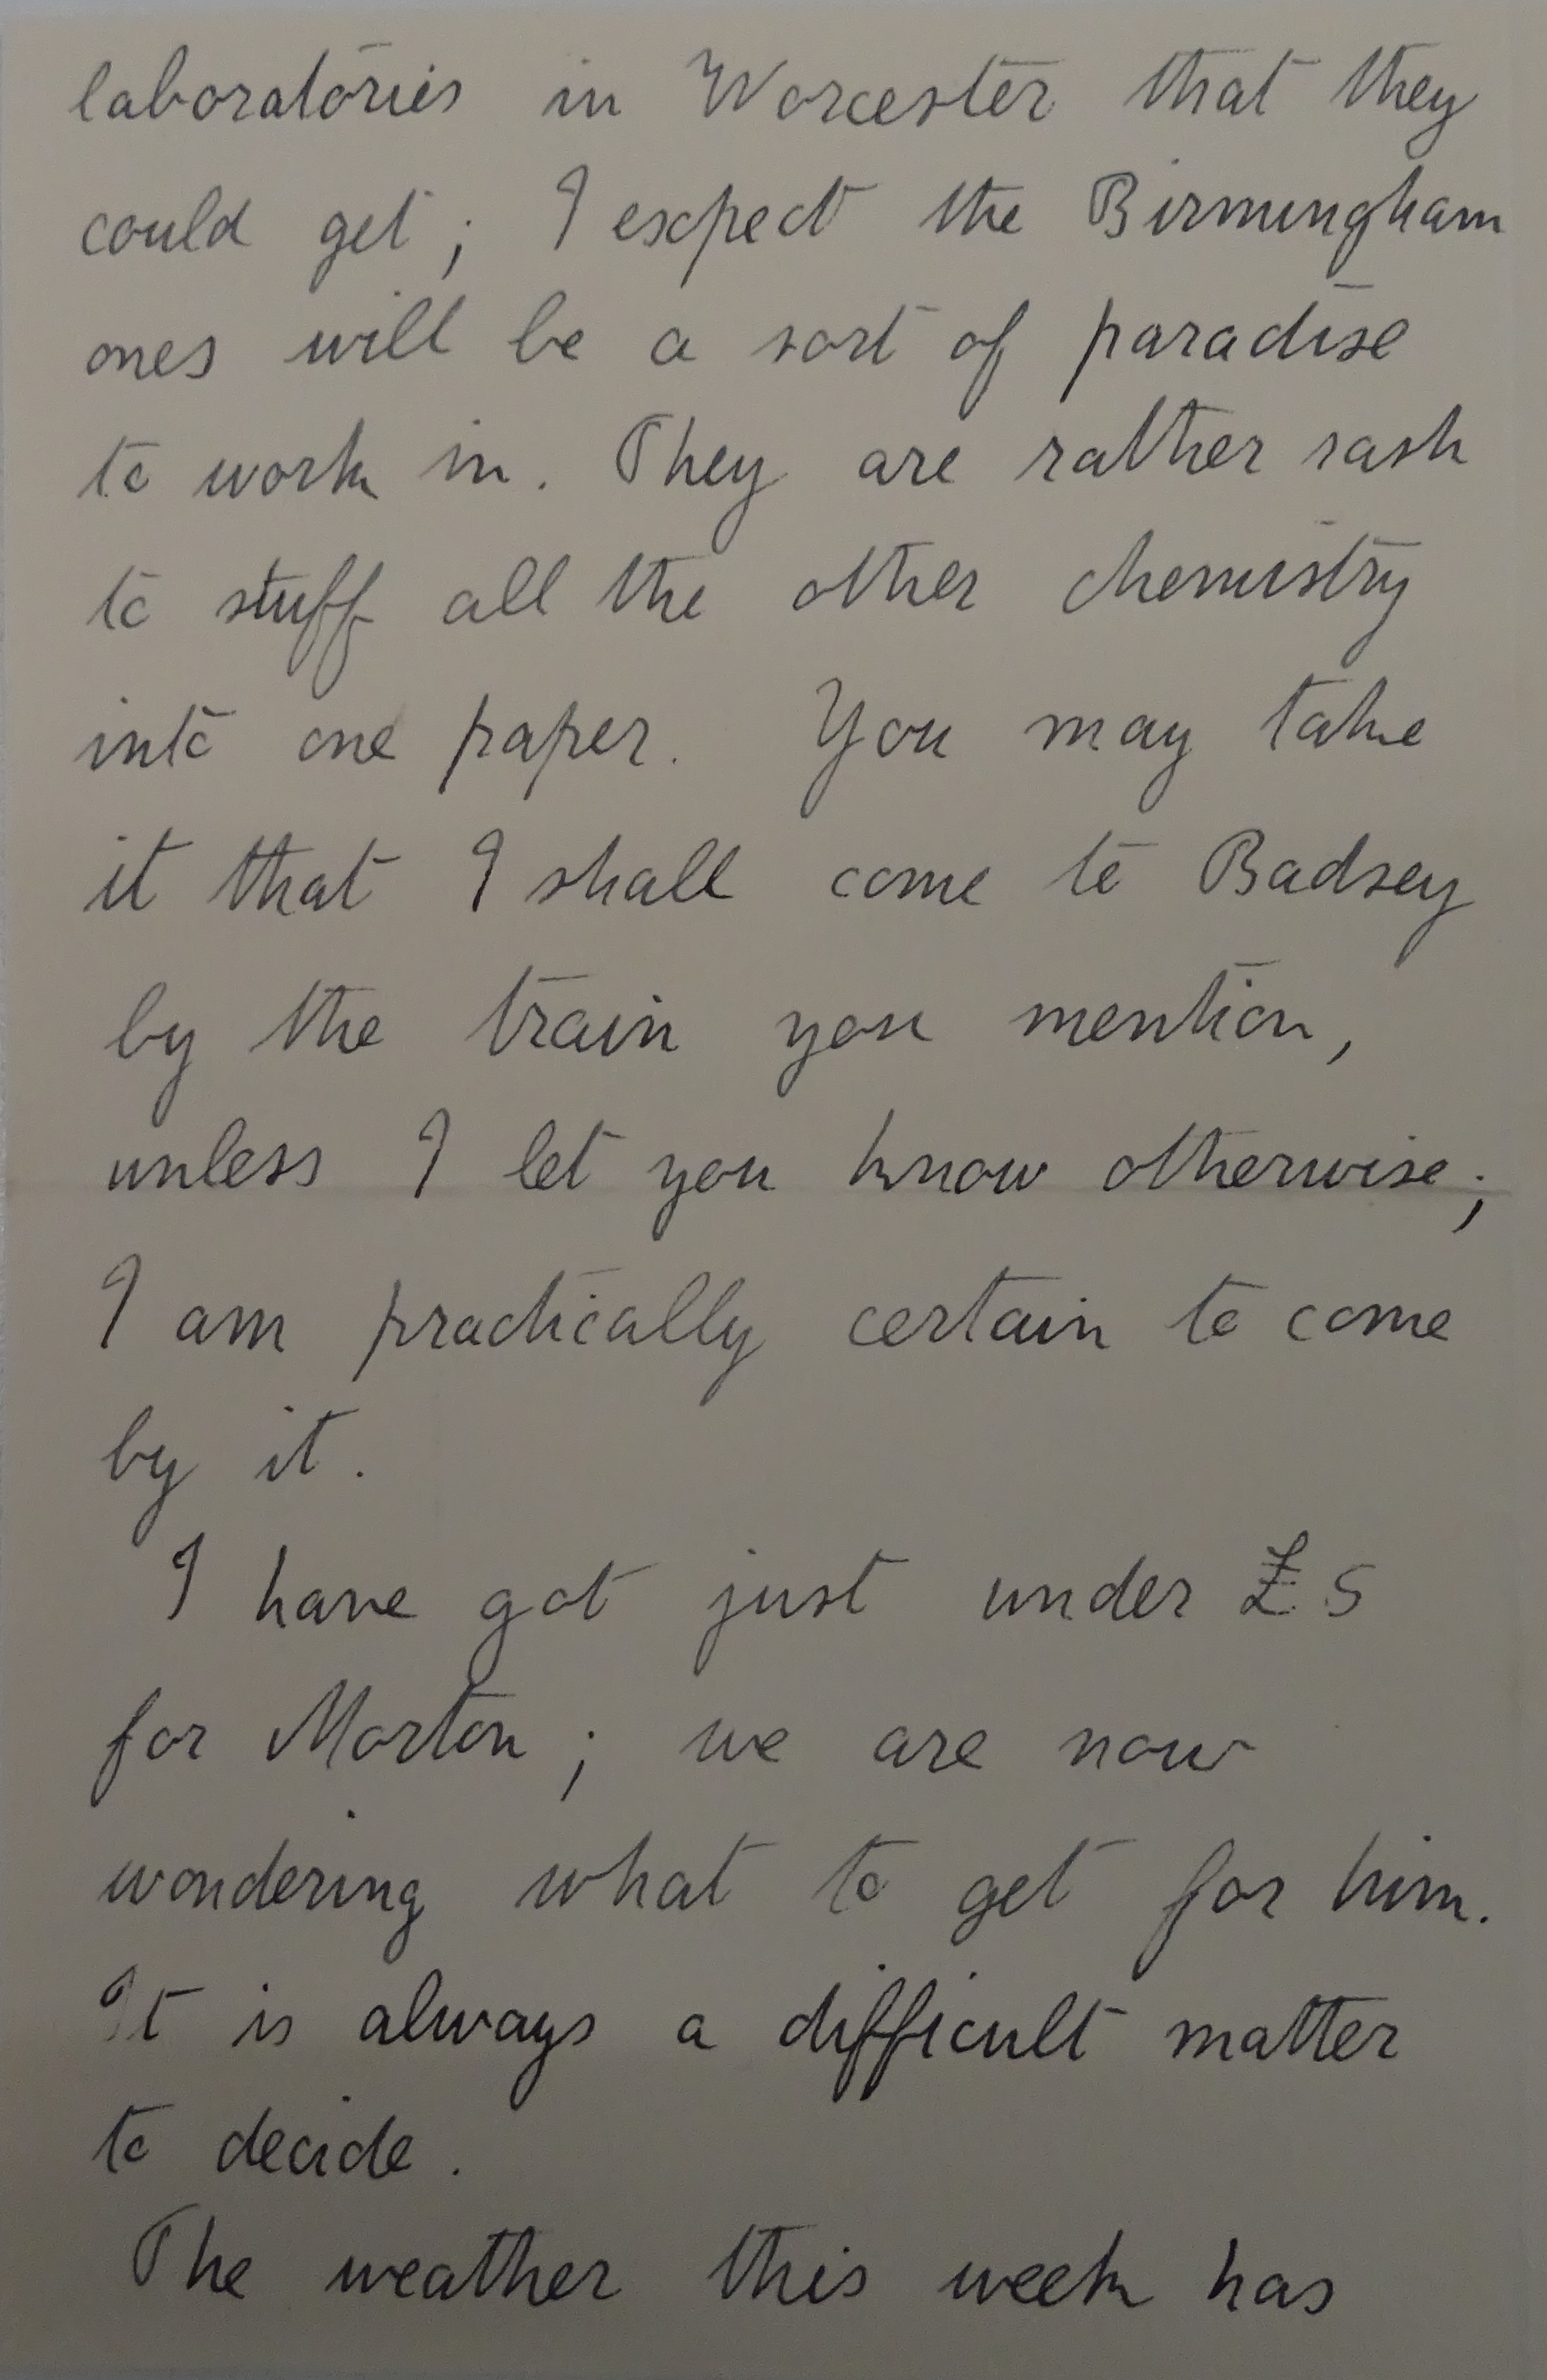 laboratories in Worcester that they
could get; I expect the Birmingham
ones will be a sort of paradise
to work in. They are rather rash
to stuff all the other chemistry
into one paper. You may take
it that I shall come to Badsey
by the train you mention,
unless I let you know otherwise;
I am practically certain to come
by it.
I have got just under £5
for Morton; we are now
wondering what to get for him.
It is always a difficult matter
to decide.
The weather this week has